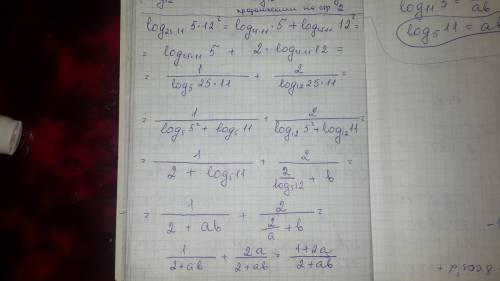 продолжение на стр 2
log₂₅.₁₁ 5·12² = log₂₅.₁₁ 5 + log₂₅.₁₁ 12² =
= log₂₅.₁₁ 5 + 2·log₂₅.₁₁ 12 =
= 1/(log₅ 25·11) + 2/(log₁₂ 25·11) =
= 1/(log₅ 5² + log₅ 11) + 2/(log₁₂ 5² + log₁₂ 11) =
= 1/(2 + log₅ 11) + 2/(2/(log₅ 12) + b) =
= 1/(2 + ab) + 2/(2/a + b) =
1/(2+ab) + 2a/(2+ab) = (1+2a)/(2+ab)
log₅ 11 = ab